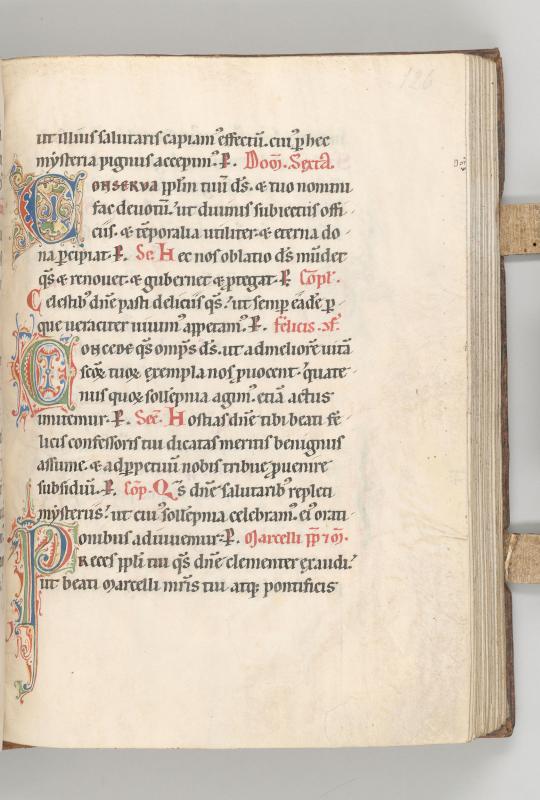 126
ut illius salutaris capiam᷒ effectū. cui᷒ ꝑ hec
mẏsteria pignus accepim᷒. P. Dom̄. Sexta.
Conserva ppl̄m tuū d̄s. & tuo nomini
fac deuotū. ut diuinis subiectus offi
ciis. & tēporalia utiliter & eterna do
na ꝑcipiat. P. Sec̄. Hec nos oblatio d̄s mūdet
q̄s & renouet. & gubernet & ꝓtegat. P. Cōpl̄.
Celestib᷒ dn̄e pasti deliciis q̄s. ut semꝑ eadē ꝑ
que ueraciter uiuim᷒ appetam᷒. P. felicis. ɔf.
Concede q̄s omp̄s d̄s. ut ad meliorē uitā
scōꝝ tuoꝝ exempla nos ꝓuocent. quate
nus quoꝝ sollēpnia agim᷒. etiā actus
imitemur. P. Sec̄. Hostias dn̄e tibi beati fe
licis confessoris tui dicatas meritis benignus
assume. & ad ꝑpetuū nobis tribue ꝓuenire
subsidiū. P. Cōp. Qs̄ dn̄e salutarib᷒ repleti
mẏsteriis. ut cui᷒ sollēpnia celebram᷒. ei᷒ orati
onibus adiuuemur. P. Marcelli pp̄ ⁊ m̄.
Preces ppl̄i tui q̄s dn̄e clementer exaudi.
ut beati Marcelli mr̄is tui atq; pontificis